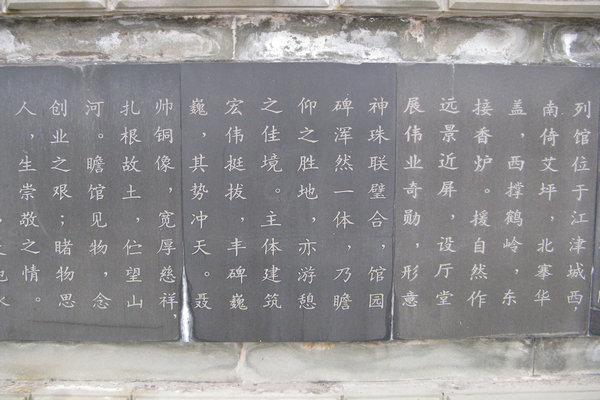 列馆位于江津城西，
南倚艾坪，北搴华
盖，西撑鹤岭，东
接香炉。援自然作
远景近屏，设厅堂
展伟业奇勋，形意
神珠联璧合，馆园
碑浑然一体，乃瞻
仰之胜地，亦游憩
之佳境。主体建筑
宏伟挺拔，丰碑巍
巍，其势冲天。聂
帅铜像，宽厚慈祥，
扎根故土，伫望山
河。瞻馆见物，念
创业之艰；睹物思
人，生崇敬之情。